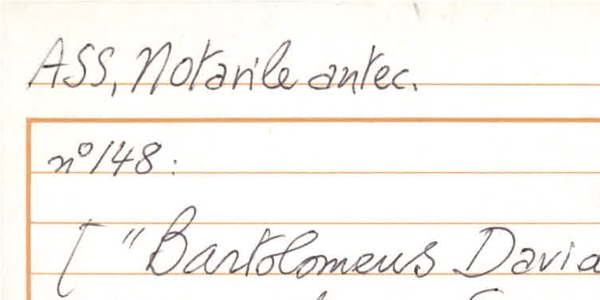 ASS, Notarile antec.
n° 148:
[ "Bartolomeus David